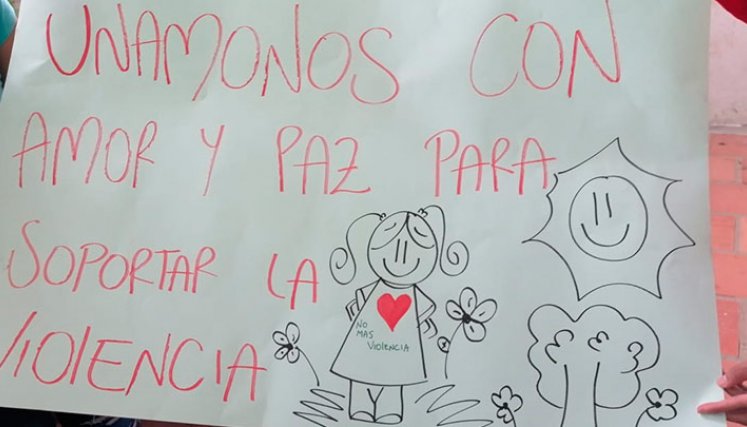 UNAMONOS CON
AMOR Y PAZ PARA
SOPORTAR LA
VIOLENCIA
NO
MAS
VIOLENCIA